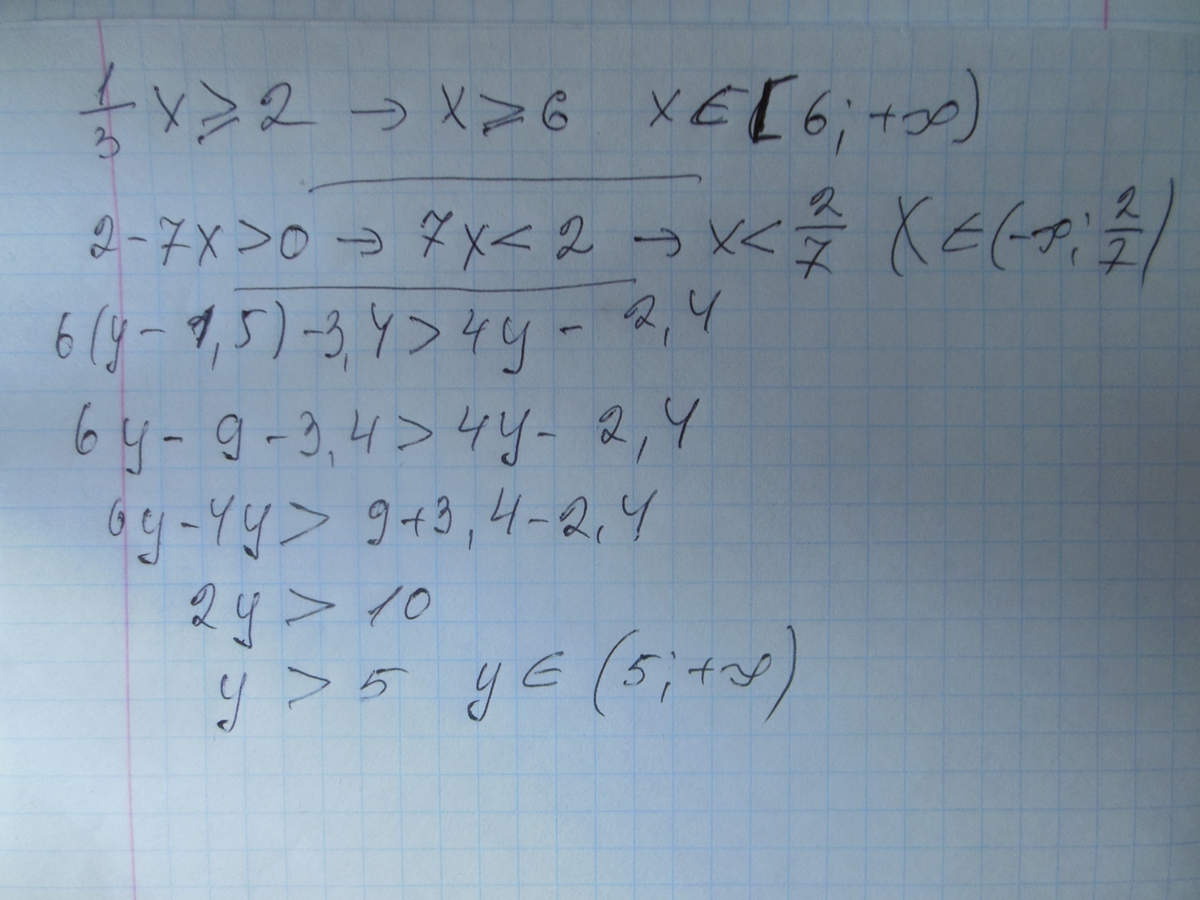 1/3 x ≥ 2 → x ≥ 6 x ∈ [6; +∞)
2 - 7x > 0 → 7x < 2 → x < 2/7 x ∈ (-∞; 2/7)
6(y - 1,5) - 3,4 > 4y - 2,4
6y - 9 - 3,4 > 4y - 2,4
6y - 4y > 9 + 3,4 - 2,4
2y > 10
y > 5 y ∈ (5; +∞)